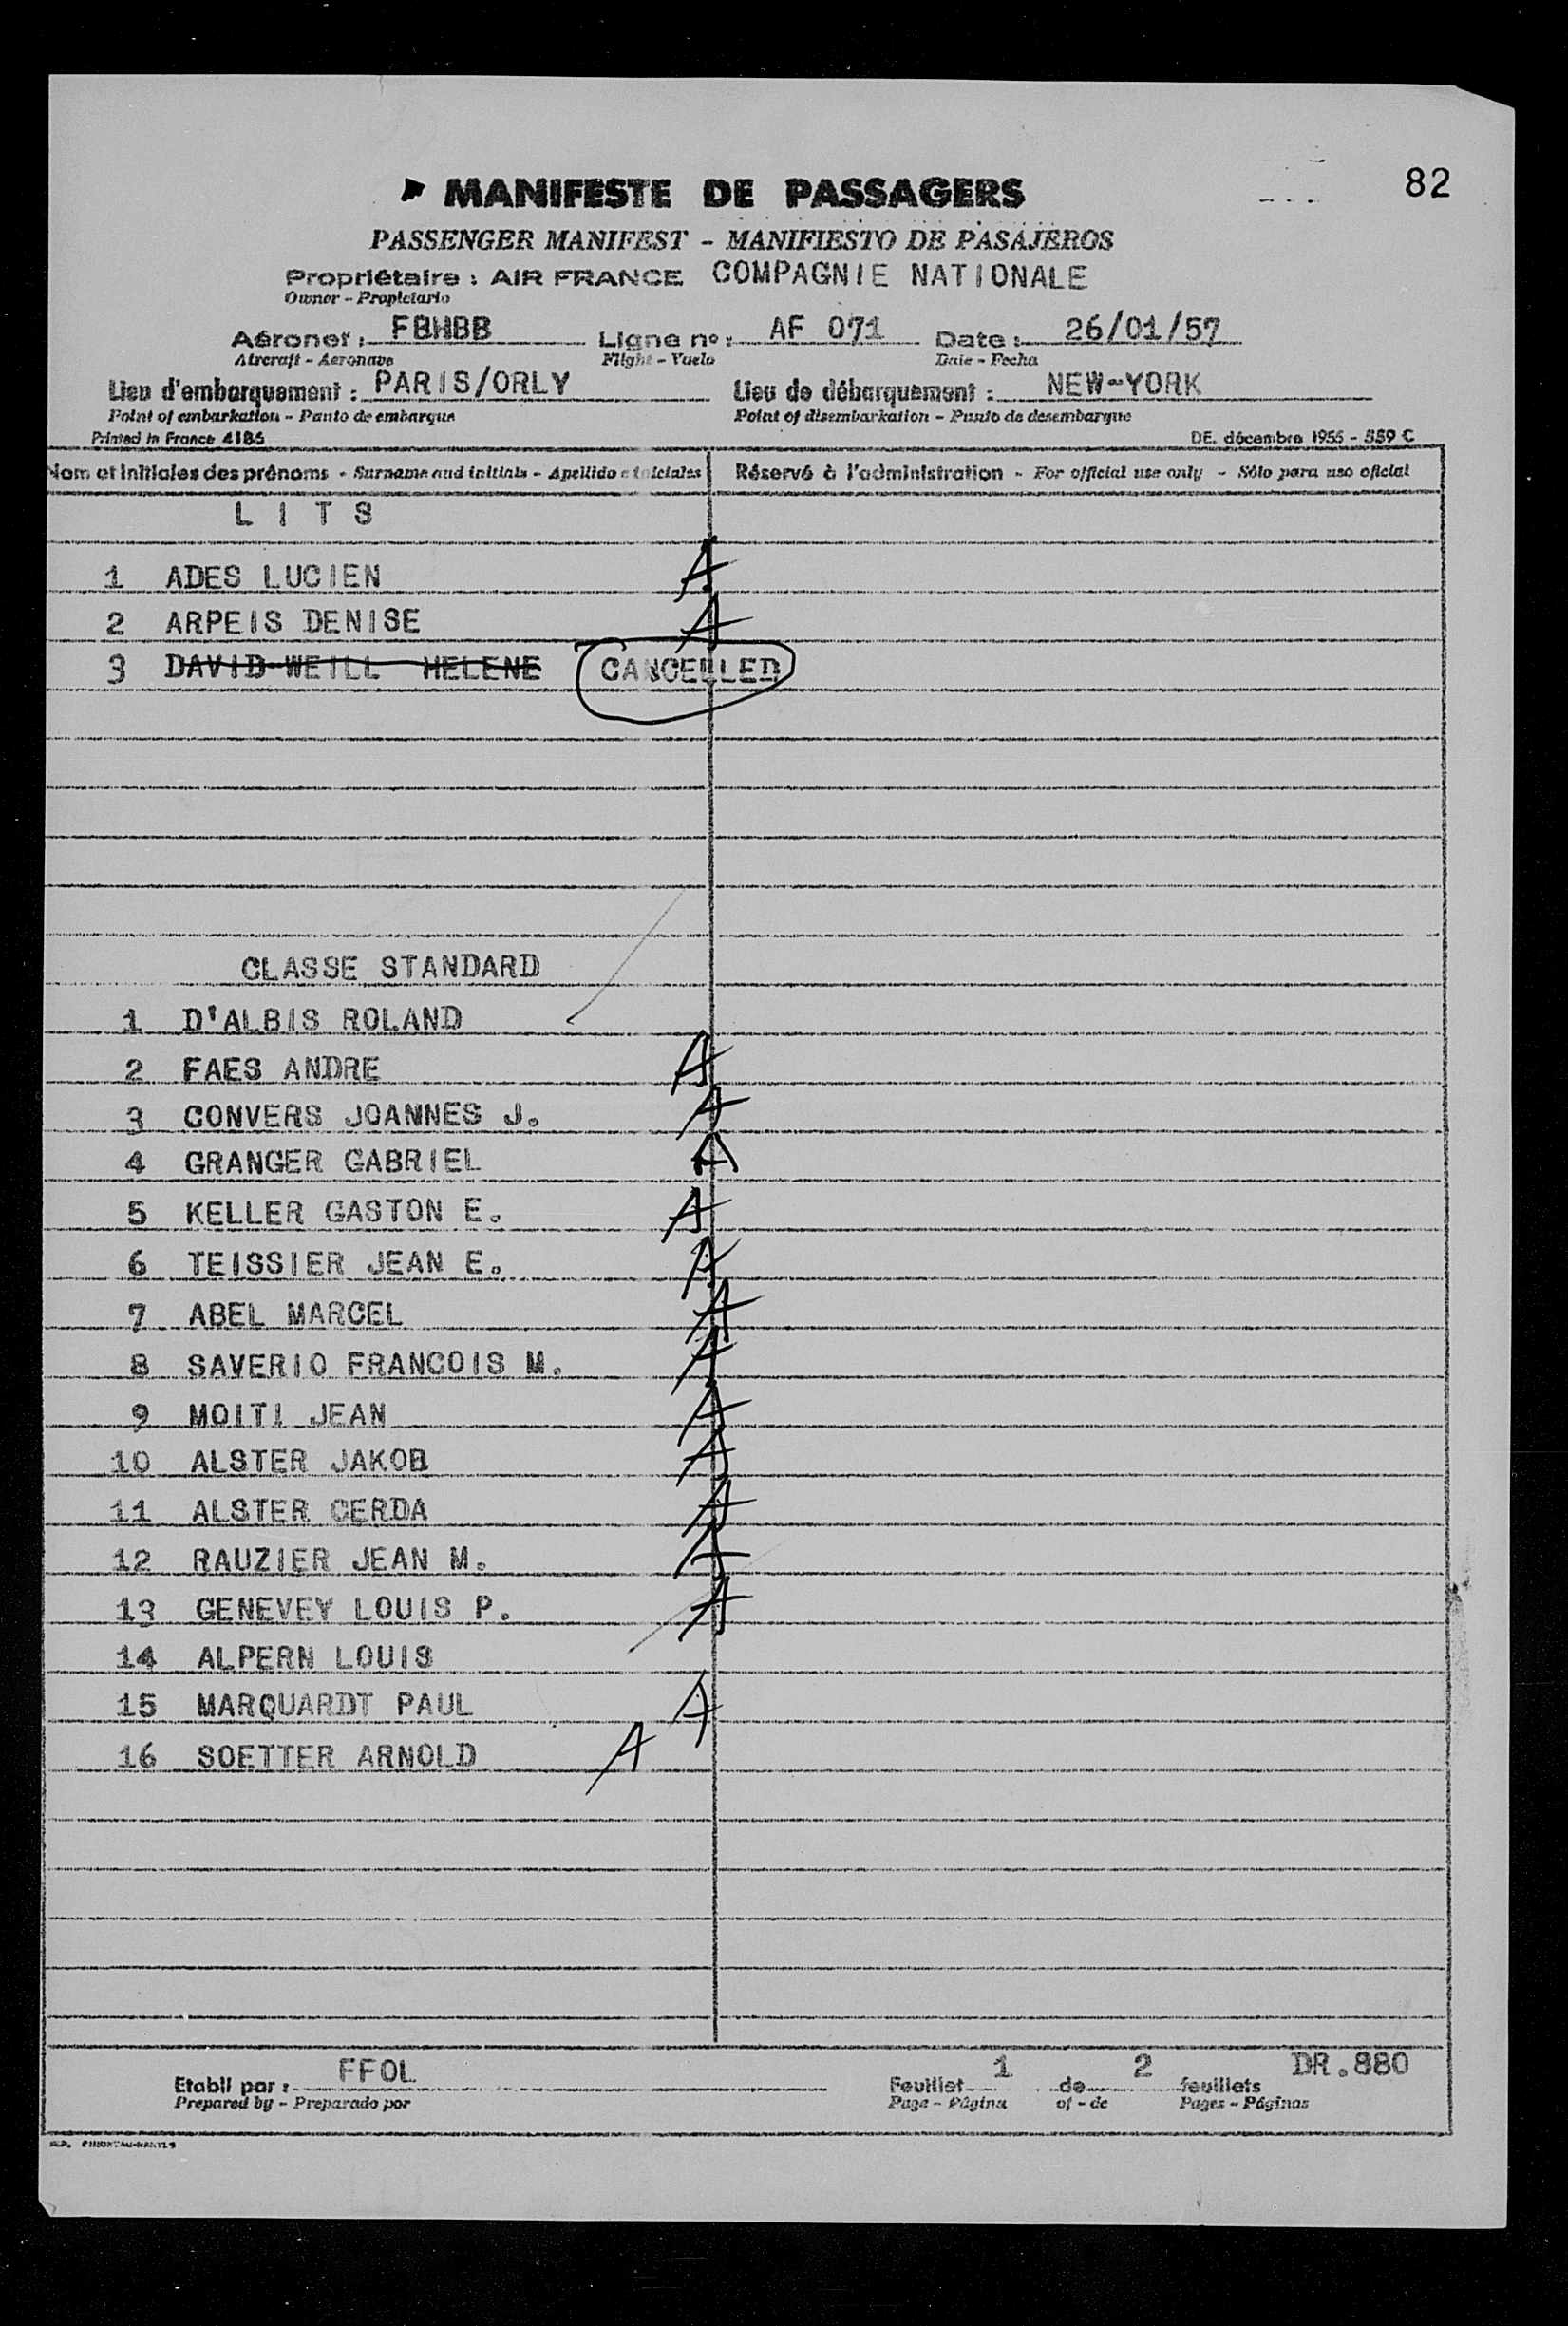 82
MANIFESTE DE PASSAGERS
PASSENGER MANIFEST - MANIFIESTO DE PASAJEROS
Propriétaire : AIR FRANCE COMPAGNIE NATIONALE
Owner - Propietario
Aéronef : FBHBB Ligne nº : AF 071 Date : 26/01/57
Aircraft - Aeronave Flight - Vuelo Date - Fecha
Lieu d'embarquement : PARIS/ORLY Lieu de débarquement : NEW-YORK
Point of embarkation - Punto de embarque Point of disembarkation - Punto de desembarque
Printed in France 4186 DE. décembre 1955 - 559 C
Nom et initiales des prénoms - Surname and initials - Apellido e iniciales Réservé à l'administration - For official use only - Sólo para uso oficial
L I T S
1 ADES LUCIEN A
2 ARPEIS DENISE A
3 DAVID-WEILL HELENE CANCELLED
CLASSE STANDARD
1 D'ALBIS ROLAND
2 FAES ANDRE A
3 CONVERS JOANNES J. A
4 GRANGER GABRIEL A
5 KELLER GASTON E. A
6 TEISSIER JEAN E. A
7 ABEL MARCEL A
8 SAVERIO FRANCOIS M. A
9 MOITI JEAN A
10 ALSTER JAKOB A
11 ALSTER CERDA A
12 RAUZIER JEAN M. A
13 GENEVEY LOUIS P. A
14 ALPERN LOUIS
15 MARQUARDT PAUL A
16 SOETTER ARNOLD A
Etabli par : FFOL Feuillet 1 de 2 feuillets DR.880
Prepared by - Preparado por Page - Página of - de Pages - Páginas